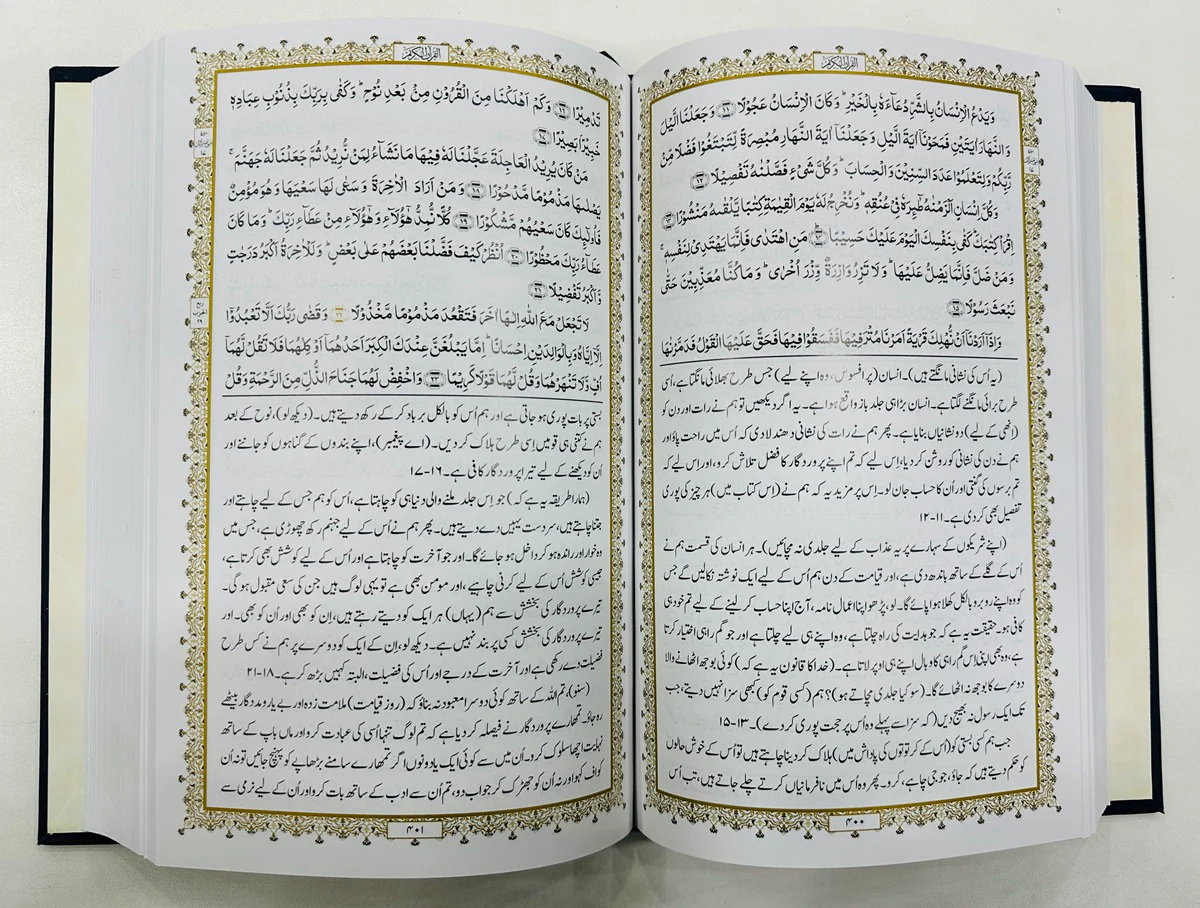 القرآن الكريم
وَيَدْعُ الْاِنْسَانُ بِالشَّرِّ دُعَآءَهٗ بِالْخَيْرِ ؕ وَكَانَ الْاِنْسَانُ عَجُوْلًا ۝۱۱ وَجَعَلْنَا الَّيْلَ
وَالنَّهَارَ اٰيَتَيْنِ فَمَحَوْنَآ اٰيَةَ الَّيْلِ وَجَعَلْنَآ اٰيَةَ النَّهَارِ مُبْصِرَةً لِّتَبْتَغُوْا فَضْلًا مِّنْ
رَّبِّكُمْ وَلِتَعْلَمُوْا عَدَدَ السِّنِيْنَ وَالْحِسَابَ ؕ وَكُلَّ شَيْءٍ فَصَّلْنٰهُ تَفْصِيْلًا ۝۱۲
وَكُلَّ اِنْسَانٍ اَلْزَمْنٰهُ طٰٓئِرَهٗ فِيْ عُنُقِهٖ ؕ وَنُخْرِجُ لَهٗ يَوْمَ الْقِيٰمَةِ كِتٰبًا يَّلْقٰىهُ مَنْشُوْرًا ۝۱۳
اِقْرَاْ كِتٰبَكَ كَفٰى بِنَفْسِكَ الْيَوْمَ عَلَيْكَ حَسِيْبًا ۝۱۴ مَنِ اهْتَدٰى فَاِنَّمَا يَهْتَدِيْ لِنَفْسِهٖ ۚ
وَمَنْ ضَلَّ فَاِنَّمَا يَضِلُّ عَلَيْهَا ؕ وَلَا تَزِرُ وَازِرَةٌ وِّزْرَ اُخْرٰى ؕ وَمَا كُنَّا مُعَذِّبِيْنَ حَتّٰى
نَبْعَثَ رَسُوْلًا ۝۱۵
وَاِذَآ اَرَدْنَآ اَنْ نُّهْلِكَ قَرْيَةً اَمَرْنَا مُتْرَفِيْهَا فَفَسَقُوْا فِيْهَا فَحَقَّ عَلَيْهَا الْقَوْلُ فَدَمَّرْنٰهَا
(یہ اُس کی نشانی مانگتے ہیں)۔ انسان (پر افسوس، وہ اپنے لیے) جس طرح بھلائی مانگتا ہے، اُسی
طرح برائی مانگنے لگتا ہے۔ انسان بڑا ہی جلد باز واقع ہوا ہے۔ یہ اگر دیکھیں تو ہم نے رات اور دن کو
(اِنھی کے لیے) دو نشانیاں بنایا ہے۔ پھر ہم نے رات کی نشانی دھندلا دی کہ اُس میں راحت پاؤ اور
ہم نے دن کی نشانی کو روشن کر دیا، اِس لیے کہ تم اپنے پروردگار کا فضل تلاش کرو، اور اِس لیے کہ
تم برسوں کی گنتی اور اُن کا حساب جان لو۔ اِس پر مزید یہ کہ ہم نے (اِس کتاب میں) ہر چیز کی پوری
تفصیل بھی کر دی ہے۔ ۱۱-۱۲
(اپنے شریکوں کے سہارے پر یہ عذاب کے لیے جلدی نہ مچائیں)۔ ہر انسان کی قسمت ہم نے
اُس کے گلے کے ساتھ باندھ دی ہے، اور قیامت کے دن ہم اُس کے لیے ایک نوشتہ نکالیں گے جس
کو وہ اپنے روبرو بالکل کھلا ہوا پائے گا۔ لو، پڑھو اپنا اعمال نامہ، آج اپنا حساب کر لینے کے لیے تم خود ہی
کافی ہو۔ حقیقت یہ ہے کہ جو ہدایت کی راہ چلتا ہے، وہ اپنے ہی لیے چلتا ہے اور جو گم راہی اختیار کرتا
ہے، وہ بھی اپنی اِس گم راہی کا وبال اپنے ہی اوپر لاتا ہے۔ (خدا کا قانون یہ ہے کہ) کوئی بوجھ اٹھانے والا
دوسرے کا بوجھ نہ اٹھائے گا۔ (سو کیا جلدی مچاتے ہو)؟ ہم (کسی قوم کو) کبھی سزا نہیں دیتے، جب
تک ایک رسول نہ بھیج دیں (کہ سزا سے پہلے وہ اُس پر حجت پوری کر دے)۔ ۱۳-۱۵
جب ہم کسی بستی کو (اُس کے کرتوتوں کی پاداش میں) ہلاک کر دینا چاہتے ہیں تو اُس کے خوش حالوں
کو حکم دیتے ہیں کہ جاؤ، جو جی چاہے، کرو۔ پھر وہ اُس میں نافرمانیاں کرتے چلے جاتے ہیں، تب اُس
۴۰۰
القرآن الكريم
تَدْمِيْرًا ۝۱۶ وَكَمْ اَهْلَكْنَا مِنَ الْقُرُوْنِ مِنْۢ بَعْدِ نُوْحٍ ؕ وَكَفٰى بِرَبِّكَ بِذُنُوْبِ عِبَادِهٖ
خَبِيْرًۢا بَصِيْرًا ۝۱۷
مَنْ كَانَ يُرِيْدُ الْعَاجِلَةَ عَجَّلْنَا لَهٗ فِيْهَا مَا نَشَآءُ لِمَنْ نُّرِيْدُ ثُمَّ جَعَلْنَا لَهٗ جَهَنَّمَ ۚ
يَصْلٰىهَا مَذْمُوْمًا مَّدْحُوْرًا ۝۱۸ وَمَنْ اَرَادَ الْاٰخِرَةَ وَسَعٰى لَهَا سَعْيَهَا وَهُوَ مُؤْمِنٌ
فَاُولٰٓئِكَ كَانَ سَعْيُهُمْ مَّشْكُوْرًا ۝۱۹ كُلًّا نُّمِدُّ هٰٓؤُلَآءِ وَهٰٓؤُلَآءِ مِنْ عَطَآءِ رَبِّكَ ؕ وَمَا كَانَ
عَطَآءُ رَبِّكَ مَحْظُوْرًا ۝۲۰ اُنْظُرْ كَيْفَ فَضَّلْنَا بَعْضَهُمْ عَلٰى بَعْضٍ ؕ وَلَلْاٰخِرَةُ اَكْبَرُ دَرَجٰتٍ
وَّاَكْبَرُ تَفْضِيْلًا ۝۲۱
لَا تَجْعَلْ مَعَ اللّٰهِ اِلٰهًا اٰخَرَ فَتَقْعُدَ مَذْمُوْمًا مَّخْذُوْلًا ۝۲۲ وَقَضٰى رَبُّكَ اَلَّا تَعْبُدُوْٓا
اِلَّآ اِيَّاهُ وَبِالْوَالِدَيْنِ اِحْسَانًا ؕ اِمَّا يَبْلُغَنَّ عِنْدَكَ الْكِبَرَ اَحَدُهُمَآ اَوْ كِلٰهُمَا فَلَا تَقُلْ لَّهُمَآ
اُفٍّ وَّلَا تَنْهَرْهُمَا وَقُلْ لَّهُمَا قَوْلًا كَرِيْمًا ۝۲۳ وَاخْفِضْ لَهُمَا جَنَاحَ الذُّلِّ مِنَ الرَّحْمَةِ وَقُلْ
بستی پر بات پوری ہو جاتی ہے اور ہم اُس کو بالکل برباد کر کے رکھ دیتے ہیں۔ (دیکھ لو)، نوح کے بعد
ہم نے کتنی ہی قومیں اِسی طرح ہلاک کر دیں۔ (اے پیغمبر)، اپنے بندوں کے گناہوں کو جاننے اور
اُن کو دیکھنے کے لیے تیرا پروردگار کافی ہے۔ ۱۶-۱۷
(ہمارا طریقہ یہ ہے کہ) جو اِس جلد ملنے والی دنیا ہی کو چاہتا ہے، اُس کو ہم جس کے لیے چاہتے اور
جتنا چاہتے ہیں، سر دست یہیں دے دیتے ہیں۔ پھر ہم نے اُس کے لیے جہنم رکھ چھوڑی ہے، جس میں
وہ خوار اور راندہ ہو کر داخل ہو جائے گا۔ اور جو آخرت کو چاہتا ہے اور اُس کے لیے کوشش بھی کرتا ہے،
جیسی کوشش اُس کے لیے کرنی چاہیے، اور مومن بھی ہے تو یہی لوگ ہیں جن کی سعی مقبول ہو گی۔
تیرے پروردگار کی بخشش سے ہم (یہاں) ہر ایک کو دیتے رہتے ہیں، اِن کو بھی اور اُن کو بھی۔ اور
تیرے پروردگار کی بخشش کسی پر بند نہیں ہے۔ دیکھ لو، اِن کے ایک کو دوسرے پر ہم نے کس طرح
فضیلت دے رکھی ہے اور آخرت کے درجے اور اُس کی فضیلت، البتہ کہیں بڑھ کر ہے۔ ۱۸-۲۱
(سنو)، تم اللہ کے ساتھ کوئی دوسرا معبود نہ بناؤ کہ (روز قیامت) ملامت زدہ اور بے یار و مددگار بیٹھے
رہ جاؤ۔ تمھارے پروردگار نے فیصلہ کر دیا ہے کہ تم لوگ تنہا اُسی کی عبادت کرو اور ماں باپ کے ساتھ
نہایت اچھا سلوک کرو۔ اُن میں سے کوئی ایک یا دونوں اگر تمھارے سامنے بڑھاپے کو پہنچ جائیں تو نہ اُن
کو اف کہو اور نہ اُن کو جھڑک کر جواب دو، تم اُن سے ادب کے ساتھ بات کرو اور اُن کے لیے نرمی سے
۴۰۱